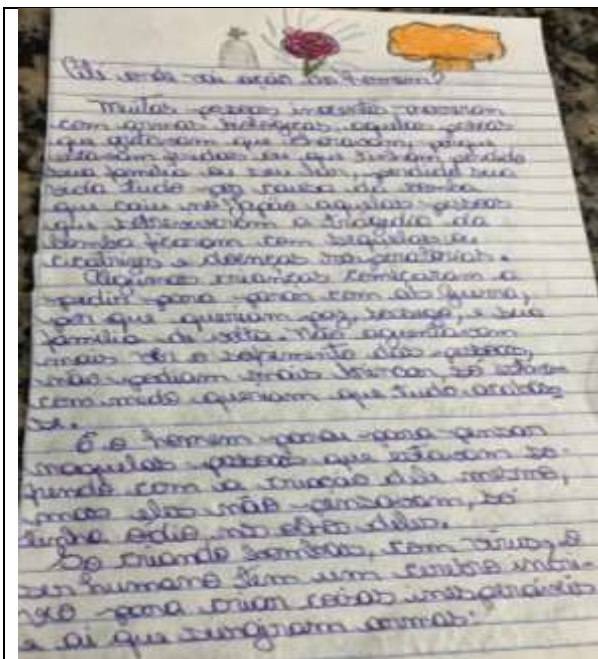 Até onde vai ação do homem?
Muitas pessoas inocentes morreram
com armas biológicas, aquelas pessoas
que gritavam que choravam, porque
estavam feridas ou que tinham perdido
sua família ou seu lar, perdido sua
vida tudo por causa da bomba
que caiu no Japão aquelas pessoas
que sobreviveram a tragedia da
bomba ficaram com sequelas e
cicatrizes e doenças respiratórias.
Algumas crianças começaram a
pedir para parar com as guerra,
por que queriam paz, sossego, e sua
família de volta. Não aguentavam
mais ver o sofrimento das pessoas,
não podiam mais brincar só
com medo queriam que tudo acabas
se.
E o homem parou para pensar
naquelas pessoas que estavam so-
frendo com a criação dele mesmo,
mas eles não pensavam, só
tinha odio nos olhos deles.
So criando bombas, com virus, o
ser humano tem um cerebro
para criar coisas
e ai que surgiram armas